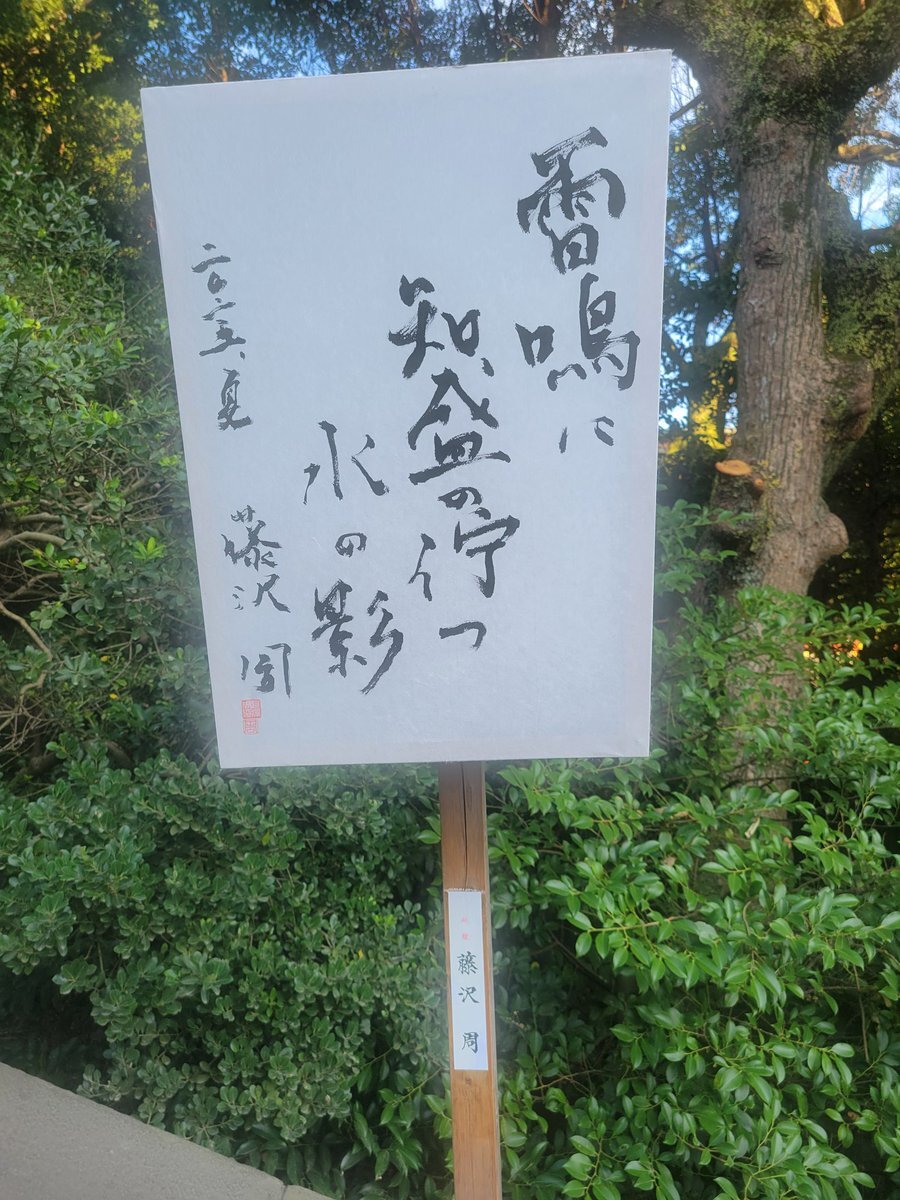 雷鳴に
知盛の佇つ
水の影
二〇二五、夏
藤沢周
藤沢 周